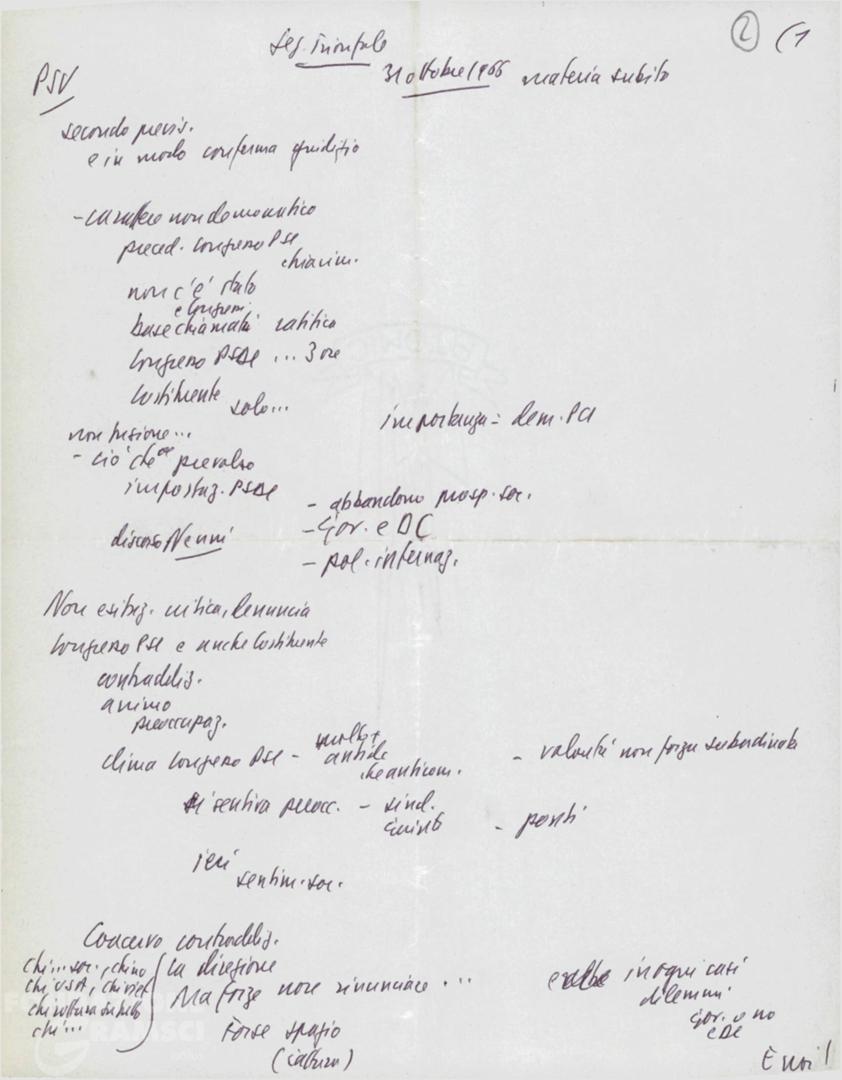 2 (1
seg. Trionfale
31 ottobre 1966 materia subito
PSU
secondo previs.
e in modo conferma giudizio
- carattere non democratico
preced. Congresso PSI
chiarim.
non c'è stato
e Congressi
base chiamata ratifica
Congresso PSDI ... 3 ore
Costituente
solo...
importanza = dem. PCI
non fusione...
- ciò che prevalso
impostaz. PSDI
- abbandono prosp. soc.
discorso Nenni
- Gov. e DC
- pol. internaz.
Non esitaz. critica, denuncia
Congresso PSI e anche Costituente
contraddiz.
animo
preoccupaz.
clima Congresso PSI - molto +
antidc
che anticom.
- volontà non forza subordinata
si sentiva preocc. - sind.
giunte
- ponti
ieri
sentim. soc.
Coacervo contraddiz.
chi... soc., chi no
chi USA, chi
chi rottura subito
chi...
la direzione
Ma forze non rinunciare ...
Forse spazio
(cattura)
in ogni casi
dilemmi
gov. o no
c DC
E noi!
FONDAZIONE
GRAMSCI